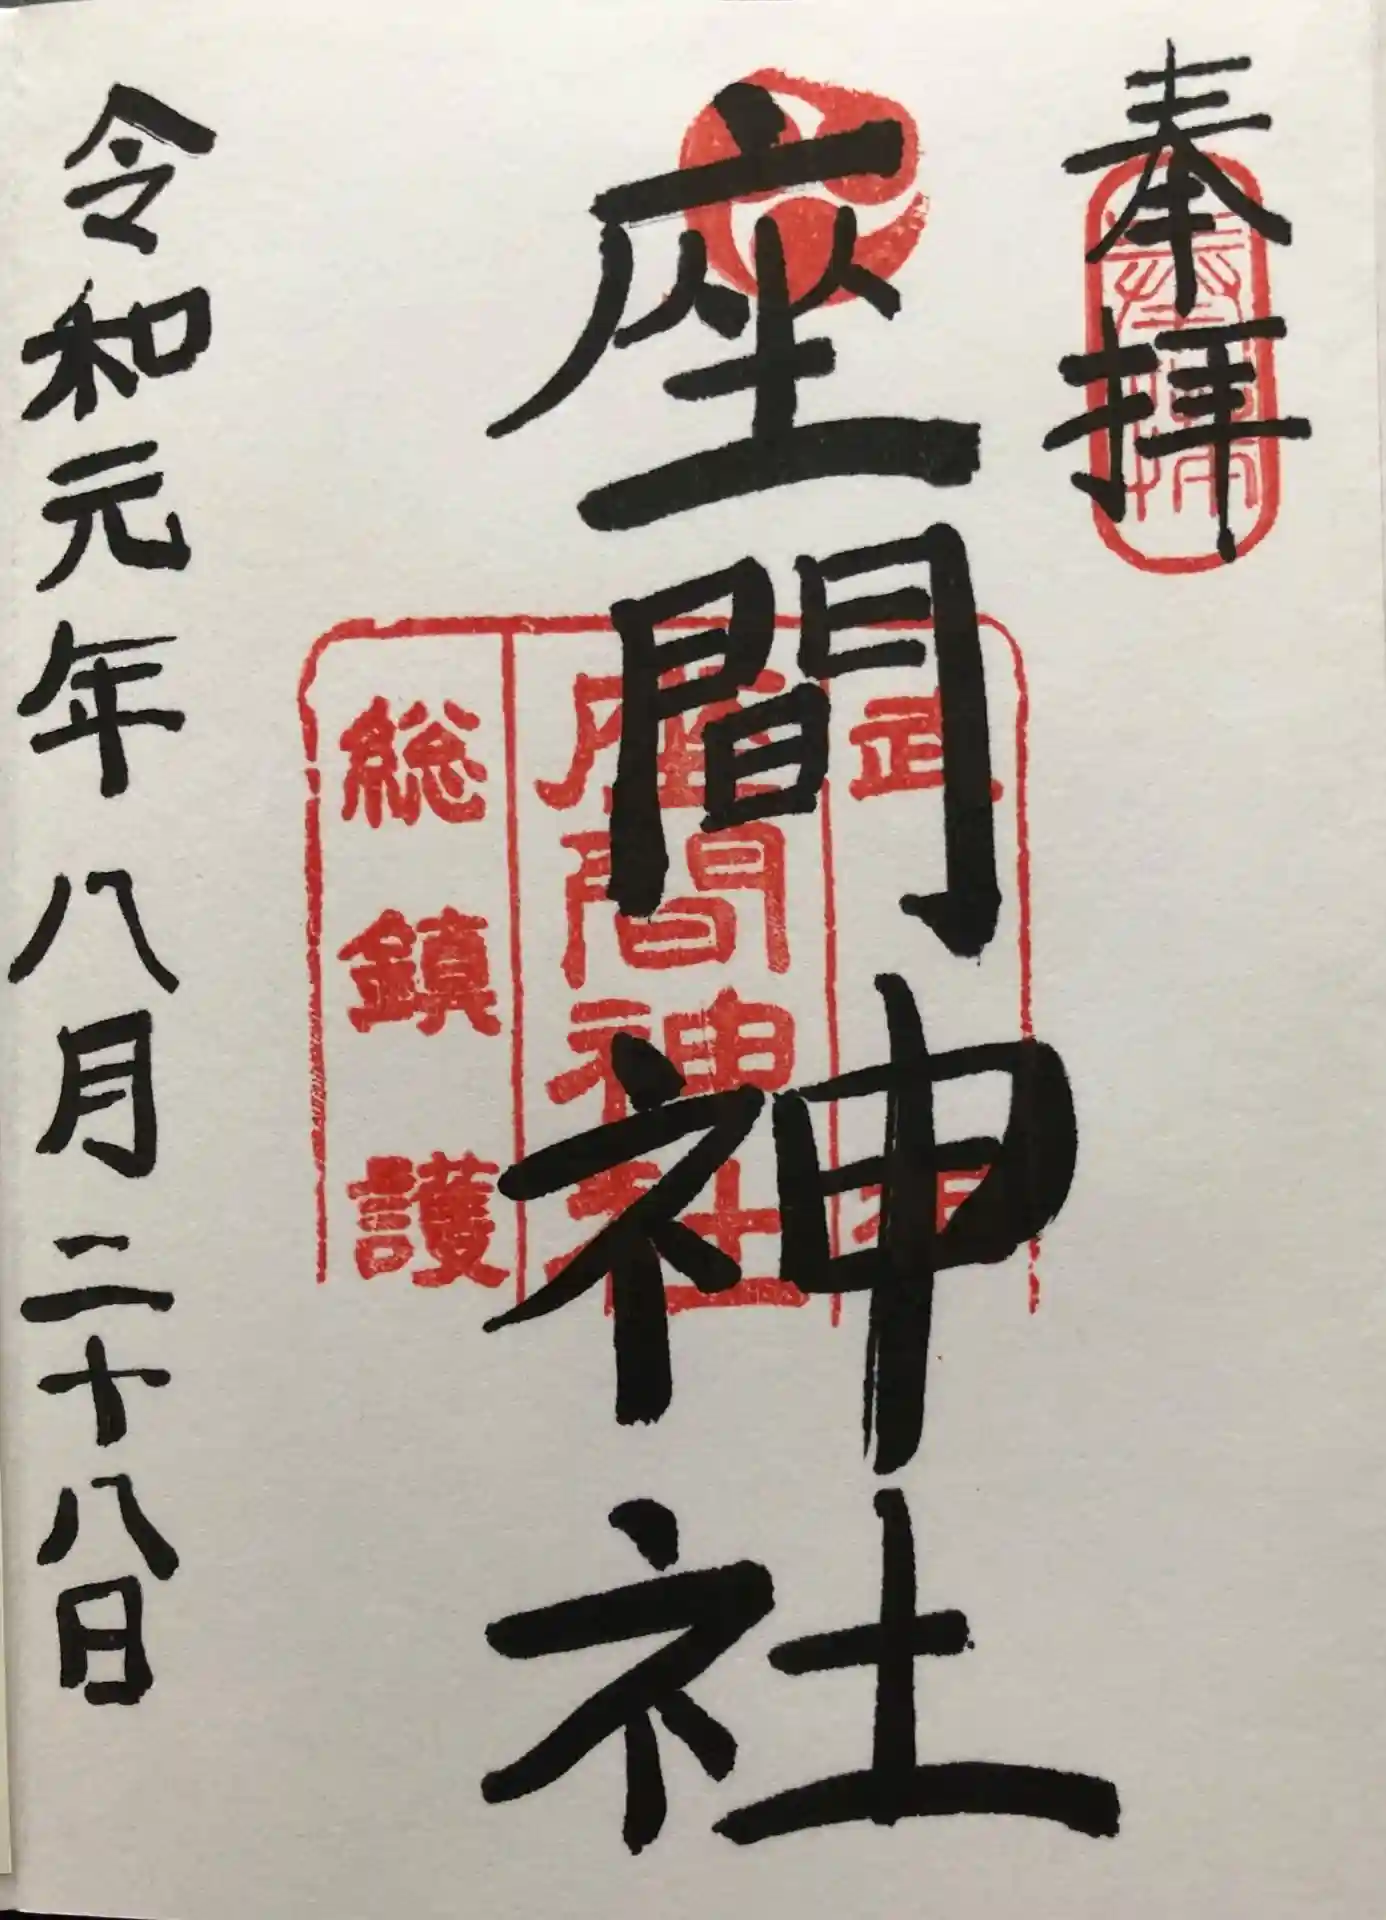 奉拝
奉拝
座間神社
武相
座間神社
総鎮護
令和元年八月二十八日